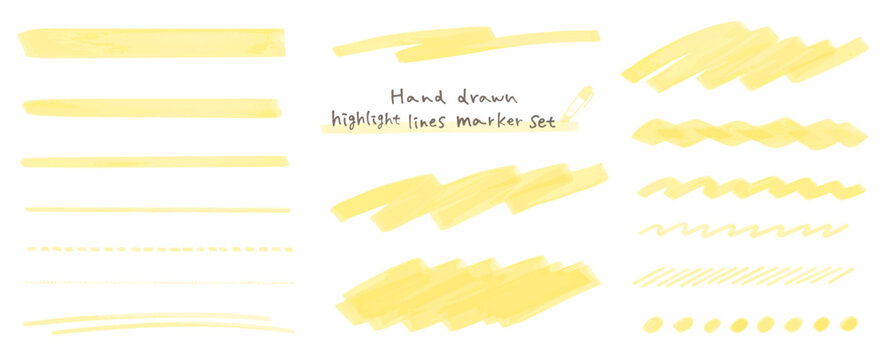 Hand drawn
highlight lines marker set